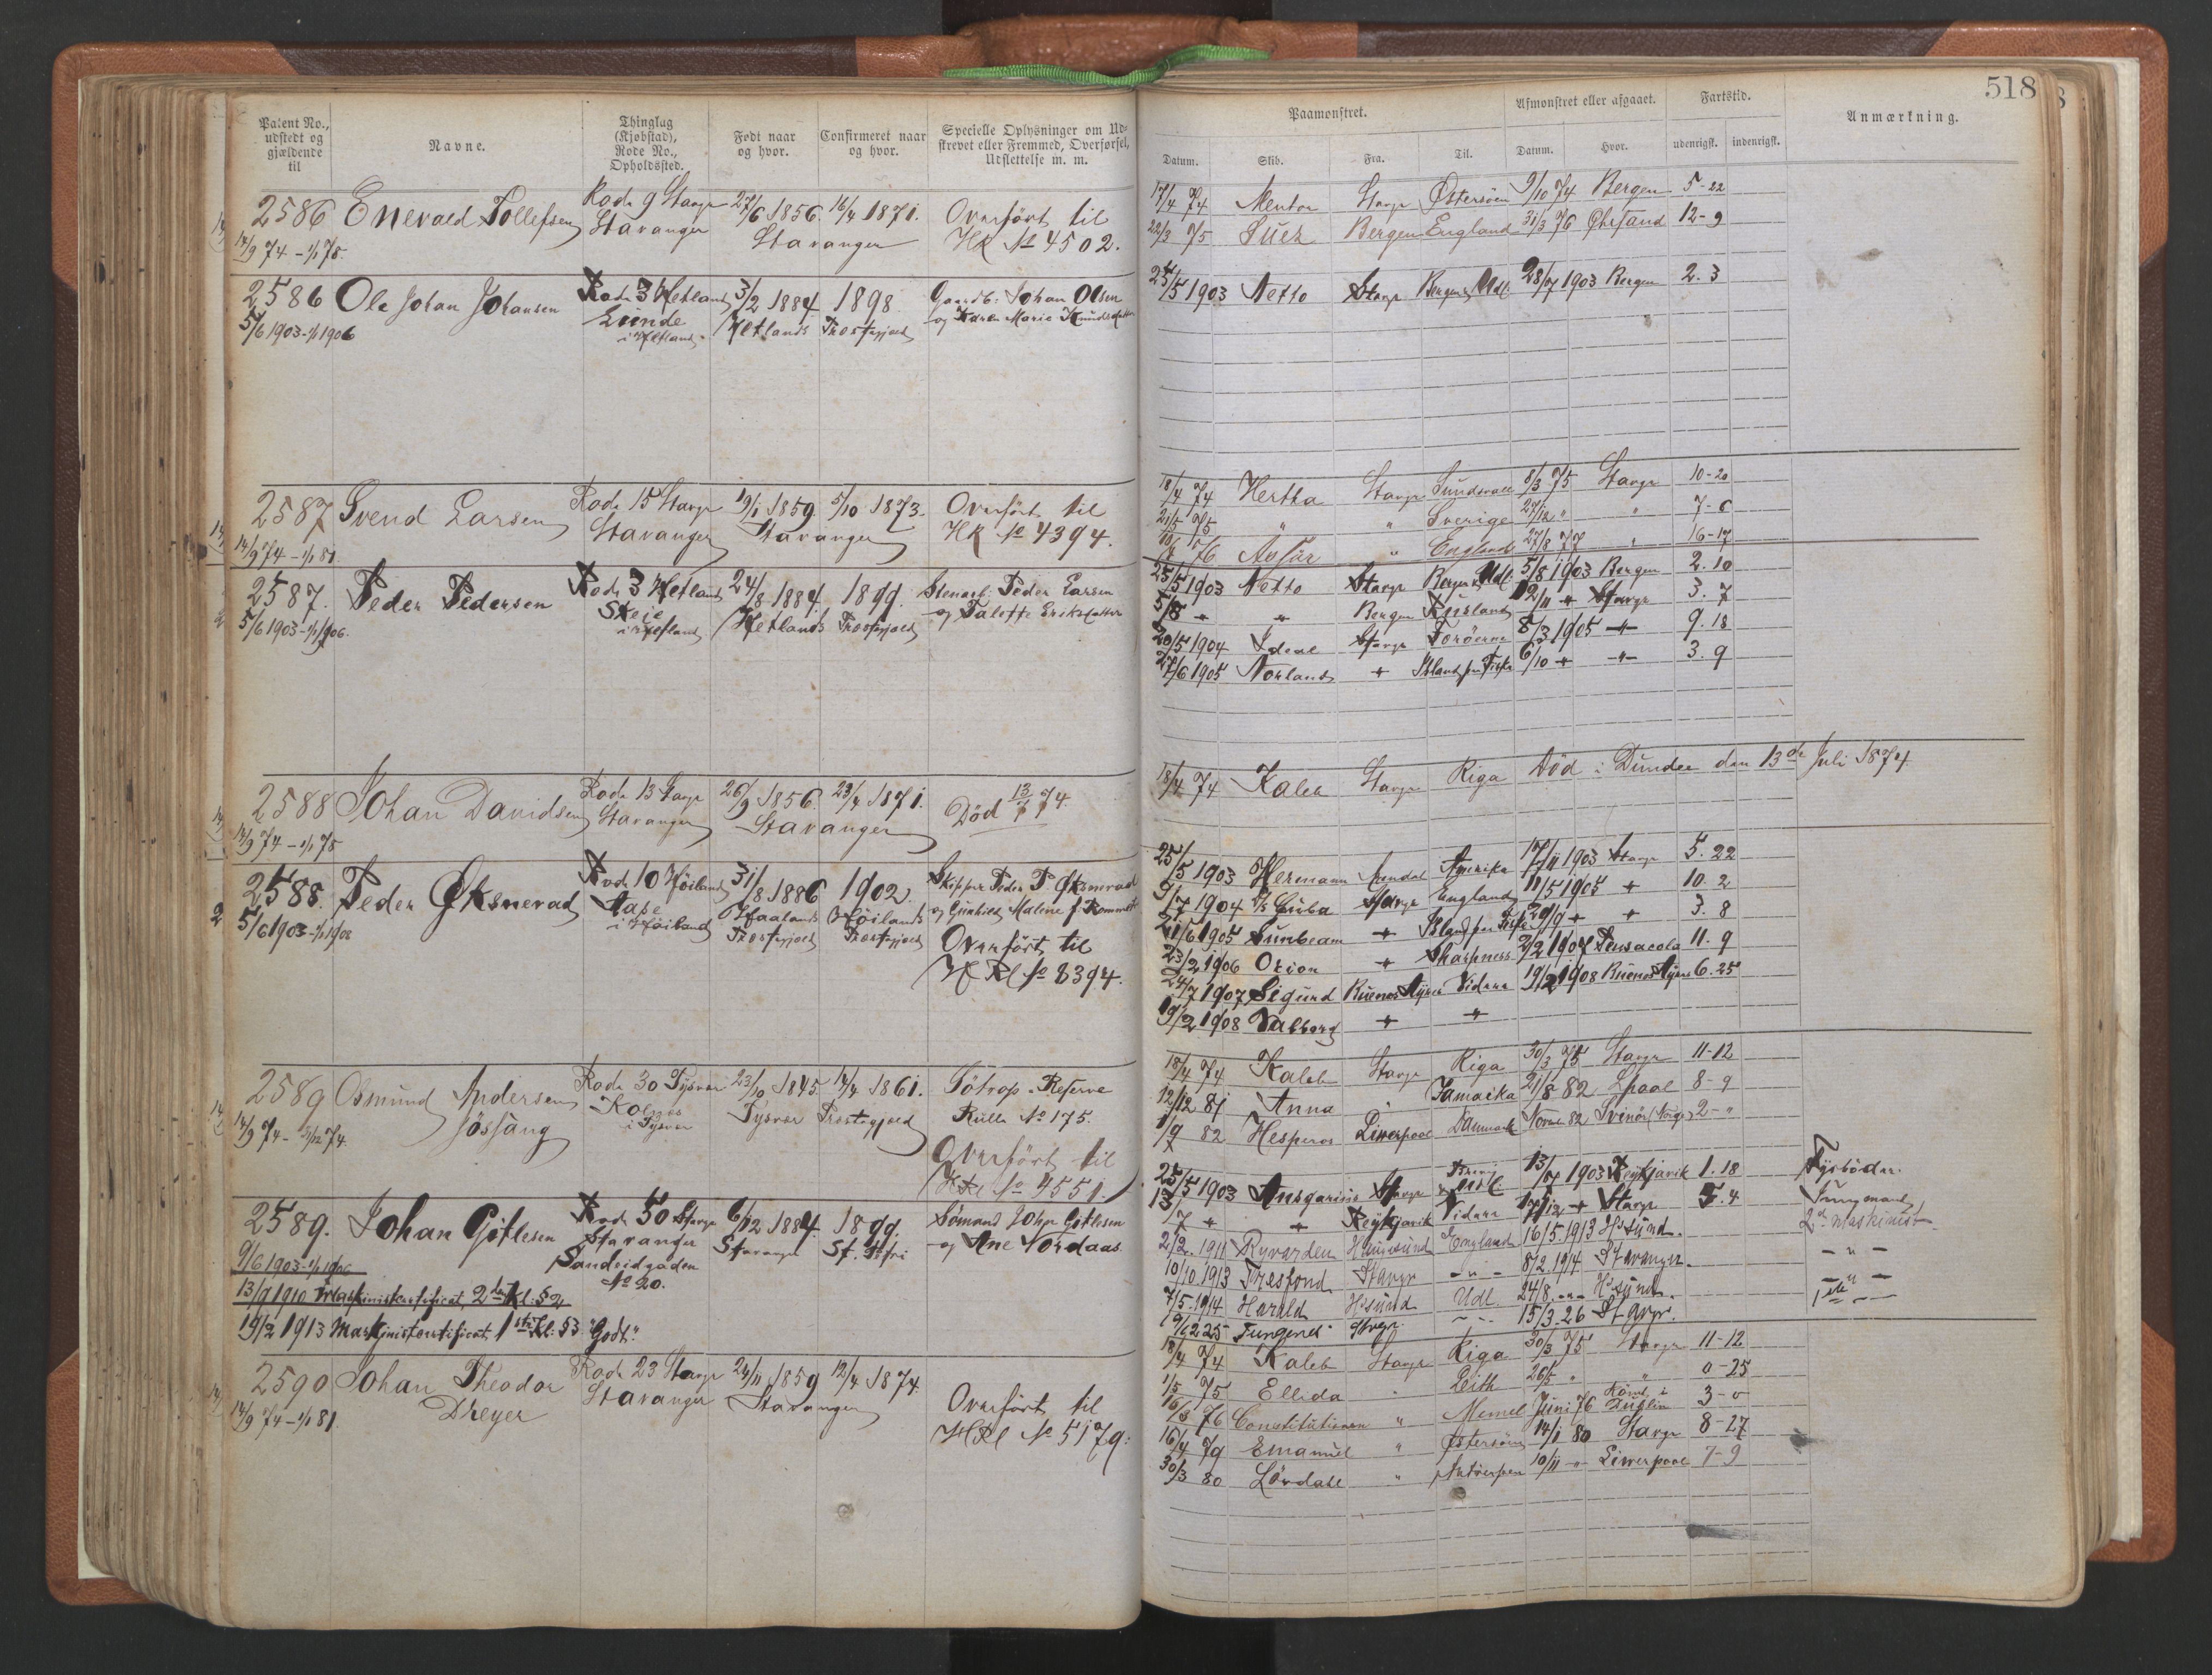 518
Patent No., udstedt og gjældende til
Navne.
Thinglag (Kjøbstad), Rode No., Opholdssted.
Født naar og hvor.
Confirmeret naar og hvor.
Specielle Oplysninger om Udskrevet eller Fremmed, Overførsel, Udslettelse m. m.
Paamønstret.
Afmønstret eller afgaaet.
Fartstid.
Anmærkning.
Datum. Skib. Fra. Til. Datum. Hvor. udenrigsk. indenrigsk.
2586 Enevald Tollefsen Rode 9 Stavgr 27/6 1856. 16/4 1871. Overført til
14/9 74 – 1/1 78. Stavanger Stavanger HR № 4502.
17/4 74 Mentor Stavgr Østersøen 9/10 74 Bergen 5-22
22/3 75 Suez Bergen England 31/3 76 Chrsand 12-9
2586 Ole Johan Johansen Rode 3 Hetland 3/2 1884 1898 Gaardb. Johan Olsen
5/6 1903 – 1/1 1906 Lunde i Hetland Hetlands Præstegjæld og Karen Marie Knudsdatter
25/5 1903 Netto Stavgr Bergen & Udl. 28/7 1903 Bergen 2. 3
2587 Svend Larsen Rode 15 Stavgr 19/1 1859 5/10 1873. Overført til
14/9 74 – 1/1 81. Stavanger Stavanger HR № 4394.
18/4 74 Hertha Stavgr Sundsvall 8/3 75 Stavgr 10-20
21/5 75 " " Sverige 27/12 " " 7-6
76 " England 27/8 77 " 16-17
2587. Peder Pedersen Rode 3 Hetland 24/8 1884. 1899. Stenarb. Peder Larsen
5/6 1903 – 1/1 1906. Skeie i Hetland Hetlands Præstegjæld og Taletta Eriksdatter
25/5 1903 Netto Stavgr Bergen & Udl. 5/8 1903 Bergen 2. 10
5/8 " " Bergen Rusland 12/11 " Stavgr 3. 7
20/5 1904 Ideal Stavgr Færøerne 8/3 1905 " 9. 18
27/6 1905 Norland " Island paa Fiske 6/10 " " 3. 9
2588 Johan Davidsen Rode 13 Stavgr 26/9 1856. 23/4 1871. Død 13/7 74.
14/9 74 – 1/1 78 Stavanger Stavanger
18/4 74 Kaleb Stavgr Riga Død i Dundee den 13de Juli 1874.
2588. Peder Øksnevad Rode 10 Høiland 31/8 1886 1902. Skipper Peder P. Øksnevad
5/6 1903 – 1/1 1908 i Høiland Haalands Præstegjæld Høilands Præstegjæld og Gunhild Maline f.
Overført til
HRl № 8394.
25/5 1903 Hermann Arendal Amerika 17/11 1903 Stavgr 5. 22
9/7 1904 Cuba Stavgr England 11/5 1905 " 10. 2
21/6 1905 Sunbeam " Island paa Fiske 29/9 " " 3. 8
23/2 1906 Orion " Sharpness 2/2 1907 Pensacola 11. 9
24/7 1907 Sigurd Buenos Ayres Vidare 19/2 1908 Buenos Ayres 6. 25
19/2 1908 Valborg " "
2589 Osmund Andersen Rode 30 Tysvær 23/10 1845. 14/4 1861. Søtrop. Reserve
14/9 74 – 31/12 74. Jøssang i Tysvær Tysvær Præstegjæld Rulle № 175.
Overført til
HRl № 4551.
18/4 74 Kaleb Stavgr Riga 30/3 75 Stavgr 11-12
12/12 81 Anna " Jamaika 21/8 82 Lpool 8-9
1/9 82 Hesperus Liverpool Danmark Novbr 82 Svinør (Norge) 2-"
2589. Johan Gitlesen Rode 50 Stavgr 6/12 1884. 1899. Sømand Johan Gitlesen
9/6 1903 – 1/1 1906 Stavanger Stavanger St. Petri og Ane Nordaas
Sandeidgaden № 20.
13/9 1910 Maskinistcertificat 2den Kl. §2
19/2 1913 Maskinistcertificat 1ste Kl. §3 "Godt."
25/5 1903 Ansgarius Stavgr 13/7 1903 Reykjavik 1. 18 Fyrbøder.
13/7 " " Reykjavik Vidare 17/12 " Stavgr 5. 4
2/2. 1911 Ryvarden Haugesund England 16/5. 1913 H.sund. 2d Maskinist
10/10. 1913 Tresfond Stavgr –"– 8/2. 1914 Stavanger. –"–
7/5. 1914 Harald H.sund Udl 24/8. –"– H.sund. –"–
19/12 25 Stvgr. –"– 15/3. 26 Stavgr. 1ste –"–
2590 Johan Theodor Dreyer Rode 23 Stavgr 24/11 1859 12/4 1874. Overført til
14/9 74 – 1/1 81. Stavanger Stavanger HRl № 5179.
18/4 74 Kaleb Stavgr Riga 30/3 75 Stavgr 11-12
1/5 75 Ellida " Leith 26/5 " " 0-25
16/3 76 Constitutionen " Memel Juni 76 Rømt i Dublin 3-0
16/4 79 Emanuel " Østersøen 14/1 80 Stavgr 8-27
30/3 80 Lövdale " Antverpen 10/11 " Liverpool 7-9